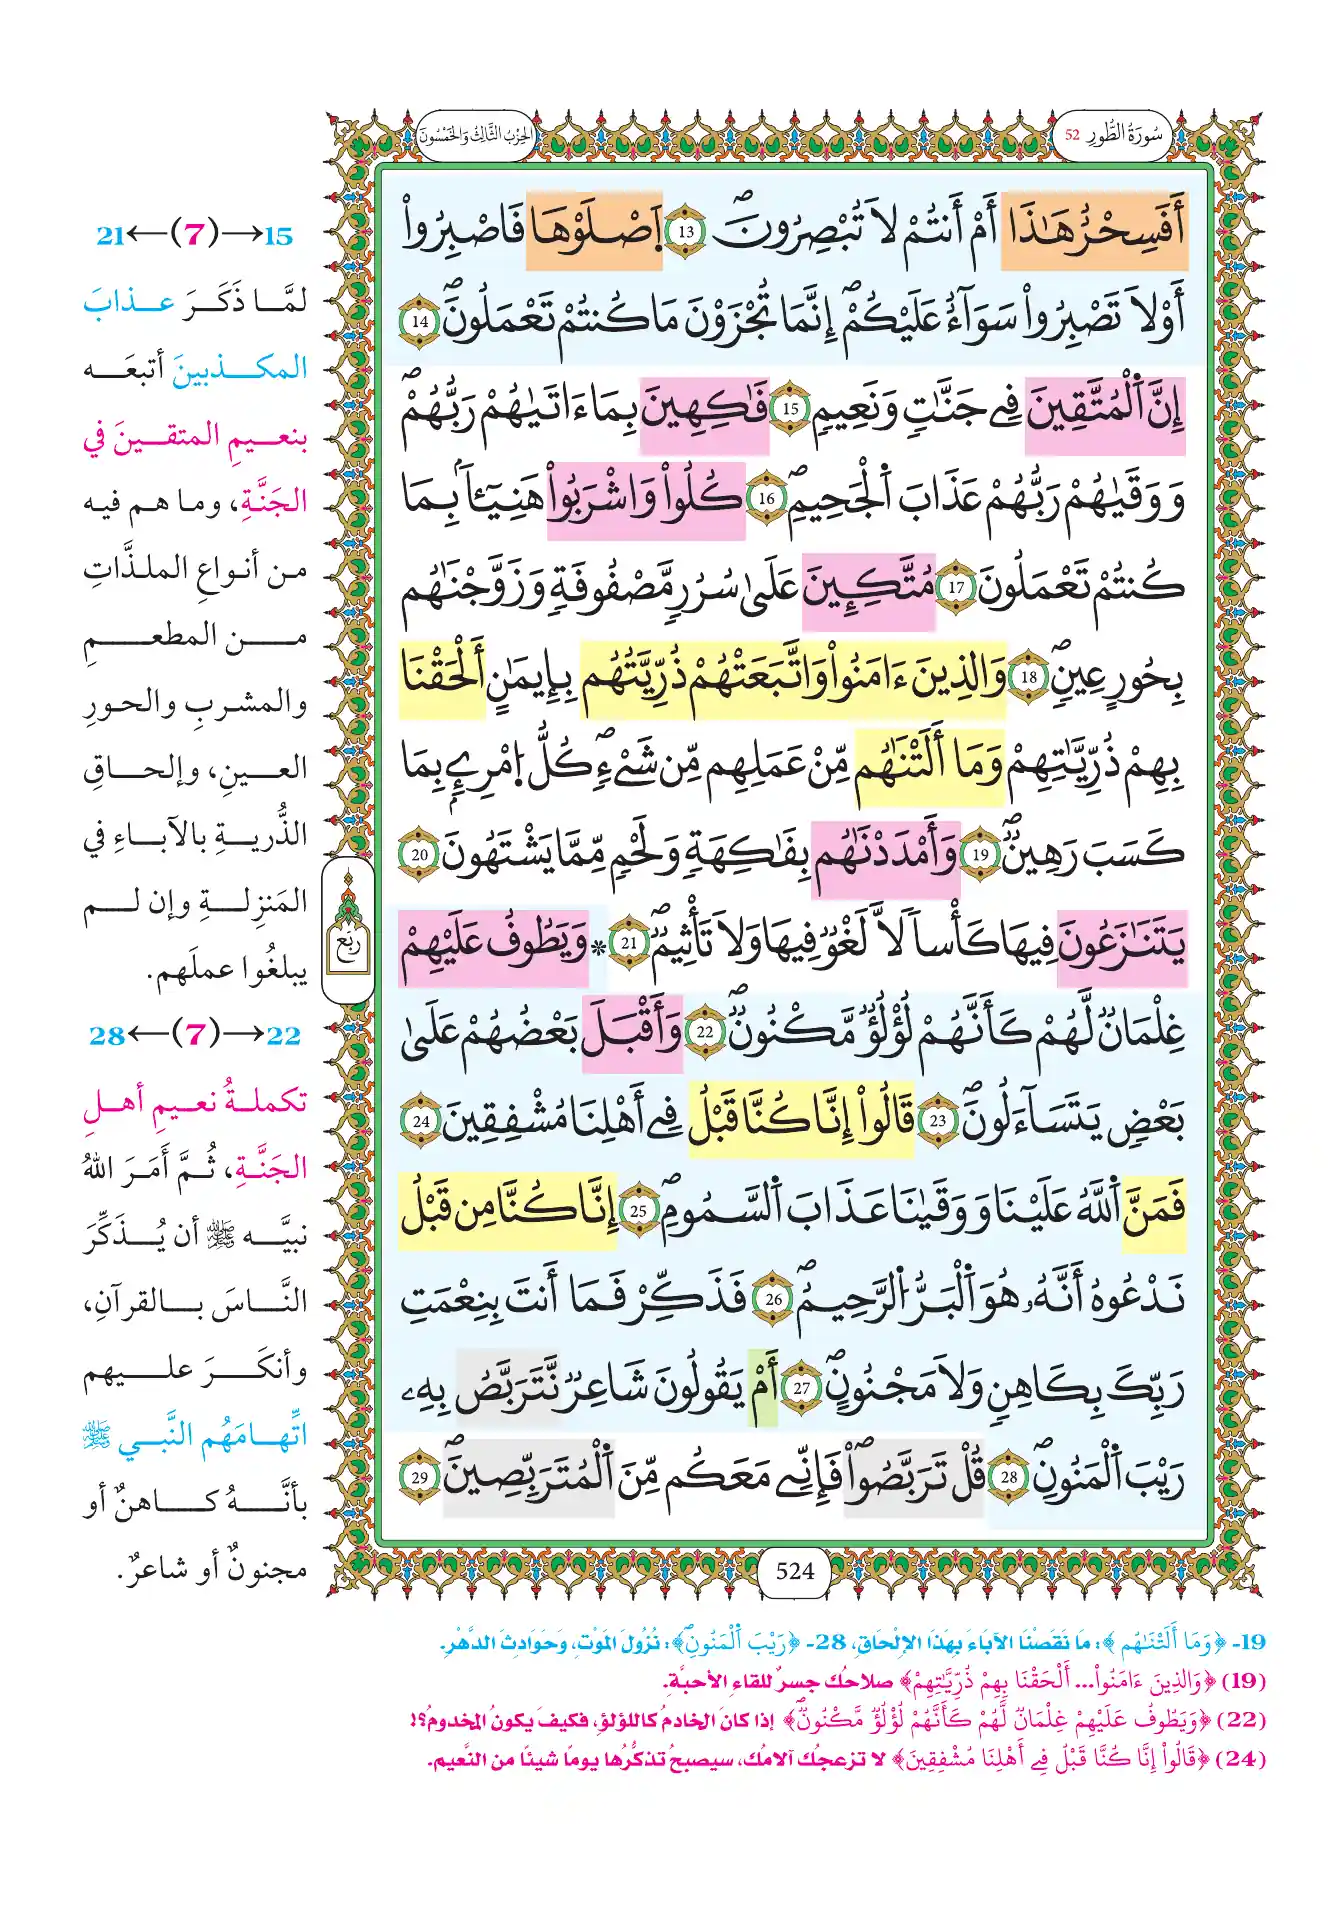 سُورَةُ الطُّورِ 52
الحِزْبُ الثَّالِثُ وَالخَمْسُونَ
أَفَسِحْرٌ هَٰذَا أَمْ أَنتُمْ لَا تُبْصِرُونَ 13 اِصْلَوْهَا فَاصْبِرُواْ
أَوْ لَا تَصْبِرُواْ سَوَآءٌ عَلَيْكُمْ إِنَّمَا تُجْزَوْنَ مَا كُنتُمْ تَعْمَلُونَ 14
إِنَّ اَلْمُتَّقِينَ فِي جَنَّٰتٍ وَنَعِيمٍ 15 فَٰكِهِينَ بِمَا ءَاتَىٰهُمْ رَبُّهُمْ
وَوَقَىٰهُمْ رَبُّهُمْ عَذَابَ اَلْجَحِيمِ 16 كُلُواْ وَاشْرَبُواْ هَنِيٓـٔاَۢ بِمَا
كُنتُمْ تَعْمَلُونَ 17 مُتَّكِـِٕينَ عَلَىٰ سُرُرٍ مَّصْفُوفَةٍ وَزَوَّجْنَٰهُم
بِحُورٍ عِينٍ 18 وَالذِينَ ءَامَنُواْ وَاتَّبَعَتْهُمْ ذُرِّيَّتُهُم بِإِيمَٰنٍ أَلْحَقْنَا
بِهِمْ ذُرِّيَّٰتِهِمْ وَمَا أَلَتْنَٰهُم مِّنْ عَمَلِهِم مِّن شَيْءٍ كُلُّ اُمْرِيٕٕ بِمَا
كَسَبَ رَهِينٌ 19 وَأَمْدَدْنَٰهُم بِفَٰكِهَةٍ وَلَحْمٍ مِّمَّا يَشْتَهُونَ 20
يَتَنَٰزَعُونَ فِيهَا كَأْساً لَّا لَغْوٌ فِيهَا وَلَا تَأْثِيمٌ 21 * وَيَطُوفُ عَلَيْهِمْ
غِلْمَانٌ لَّهُمْ كَأَنَّهُمْ لُؤْلُؤٌ مَّكْنُونٌ 22 وَأَقْبَلَ بَعْضُهُمْ عَلَىٰ
بَعْضٍ يَتَسَآءَلُونَ 23 قَالُواْ إِنَّا كُنَّا قَبْلُ فِي أَهْلِنَا مُشْفِقِينَ 24
فَمَنَّ اَللَّهُ عَلَيْنَا وَوَقَىٰنَا عَذَابَ اَلسَّمُومِ 25 إِنَّا كُنَّا مِن قَبْلُ
نَدْعُوهُ أَنَّهُۥ هُوَ اَلْبَرُّ اُلرَّحِيمُ 26 فَذَكِّرْ فَمَا أَنتَ بِنِعْمَتِ
رَبِّكَ بِكَاهِنٍ وَلَا مَجْنُونٍ 27 أَمْ يَقُولُونَ شَاعِرٌ نَّتَرَبَّصُ بِهِۦ
رَيْبَ اَلْمَنُونِ 28 قُلْ تَرَبَّصُواْ فَإِنِّي مَعَكُم مِّنَ اَلْمُتَرَبِّصِينَ 29
ربع
524
15→(7)←21
لمَّا ذَكَرَ عذابَ
المكذبينَ أتبعَه
بنعيمِ المتقينَ في
الجَنَّةِ، وما هم فيه
من أنواعِ الملذَّاتِ
من المطعمِ
والمشربِ والحورِ
العينِ، وإلحاقِ
الذُّريةِ بالآباءِ في
المَنزِلةِ وإن لم
يبلغُوا عملَهم.
22→(7)←28
تكملةُ نعيمِ أهلِ
الجَنَّةِ، ثُمَّ أَمَرَ اللهُ
نبيَّه ﷺ أن يُذَكِّرَ
النَّاسَ بالقرآنِ،
وأنكَرَ عليهم
اتِّهامَهُم النَّبي ﷺ
بأنَّهُ كاهنٌ أو
مجنونٌ أو شاعرٌ.
19- ﴿وَمَا أَلَتْنَٰهُم﴾: مَا نَقَصْنَا الآبَاءَ بِهَذَا الإِلْحَاقِ، 28- ﴿رَيْبَ اَلْمَنُونِ﴾: نُزُولَ المَوْتِ، وَحَوَادِثَ الدَّهْرِ.
(19) ﴿وَالذِينَ ءَامَنُواْ... أَلْحَقْنَا بِهِمْ ذُرِّيَّٰتِهِمْ﴾ صلاحُك جسرٌ للقاءِ الأحبَّةِ.
(22) ﴿وَيَطُوفُ عَلَيْهِمْ غِلْمَانٌ لَّهُمْ كَأَنَّهُمْ لُؤْلُؤٌ مَّكْنُونٌ﴾ إذا كانَ الخادمُ كاللؤلؤِ، فكيفَ يكونُ المخدومُ؟!
(24) ﴿قَالُواْ إِنَّا كُنَّا قَبْلُ فِي أَهْلِنَا مُشْفِقِينَ﴾ لا تزعجكُ آلامُك، سيصبحُ تذكُّرُها يومًا شيئًا من النَّعيم.